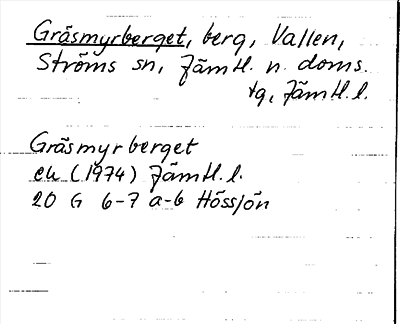 Gräsmyrberget, berg, Vallen,
Ströms sn, Jämtl. n. doms.
tg, Jämtl. l.
Gräsmyrberget
ek (1974) Jämtl. l.
20 G 6-7 a-b Hössjön